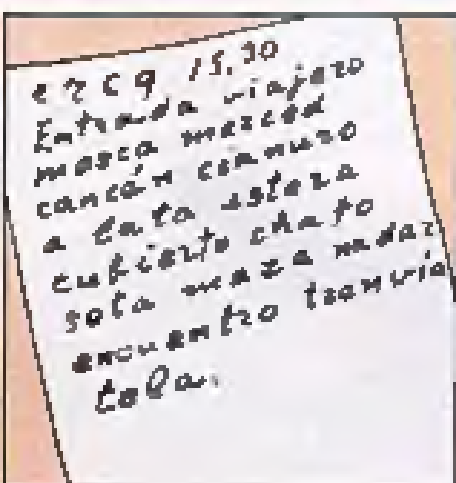 e 7 c 9 15,30
Entrada viajero
mosca merced
cancán cianuro
a lata estera
cubierto chato
sota maza nadar
encuentro tranvía
tola.